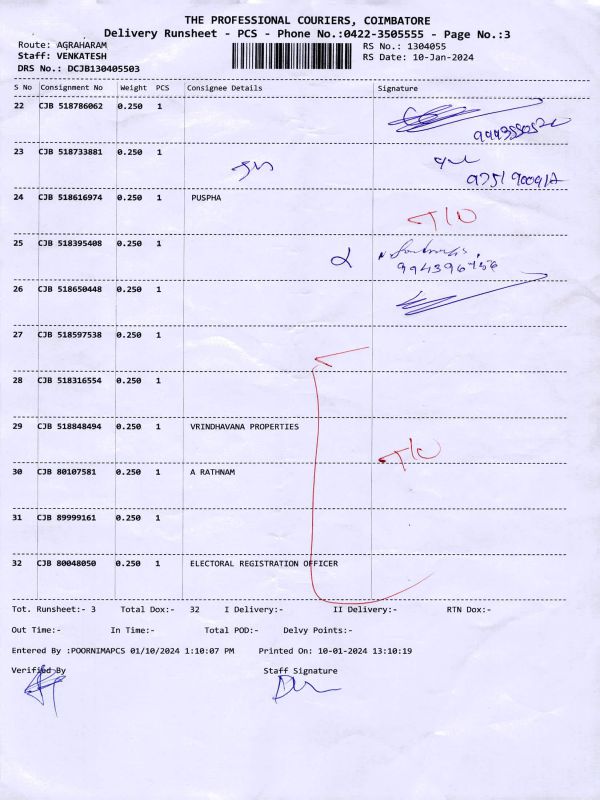 THE PROFESSIONAL COURIERS, COIMBATORE
Delivery Runsheet - PCS - Phone No.:0422-3505555 - Page No.:3
Route: AGRAHARAM RS No.: 1304055
Staff: VENKATESH RS Date: 10-Jan-2024
DRS No.: DCJB130405503
S No Consignment No Weight PCS Consignee Details Signature
22 CJB 518786062 0.250 1
23 CJB 518733881 0.250 1
24 CJB 518616974 0.250 1 PUSPHA
25 CJB 518395408 0.250 1
26 CJB 518650448 0.250 1
27 CJB 518597538 0.250 1
28 CJB 518316554 0.250 1
29 CJB 518848494 0.250 1 VRINDHAVANA PROPERTIES
30 CJB 80107581 0.250 1 A RATHNAM
31 CJB 89999161 0.250 1
32 CJB 80048050 0.250 1 ELECTORAL REGISTRATION OFFICER
Tot. Runsheet:- 3 Total Dox:- 32 I Delivery:- II Delivery:- RTN Dox:-
Out Time:- In Time:- Total POD:- Delvy Points:-
Entered By :POORNIMAPCS 01/10/2024 1:10:07 PM Printed On: 10-01-2024 13:10:19
Verified By Staff Signature